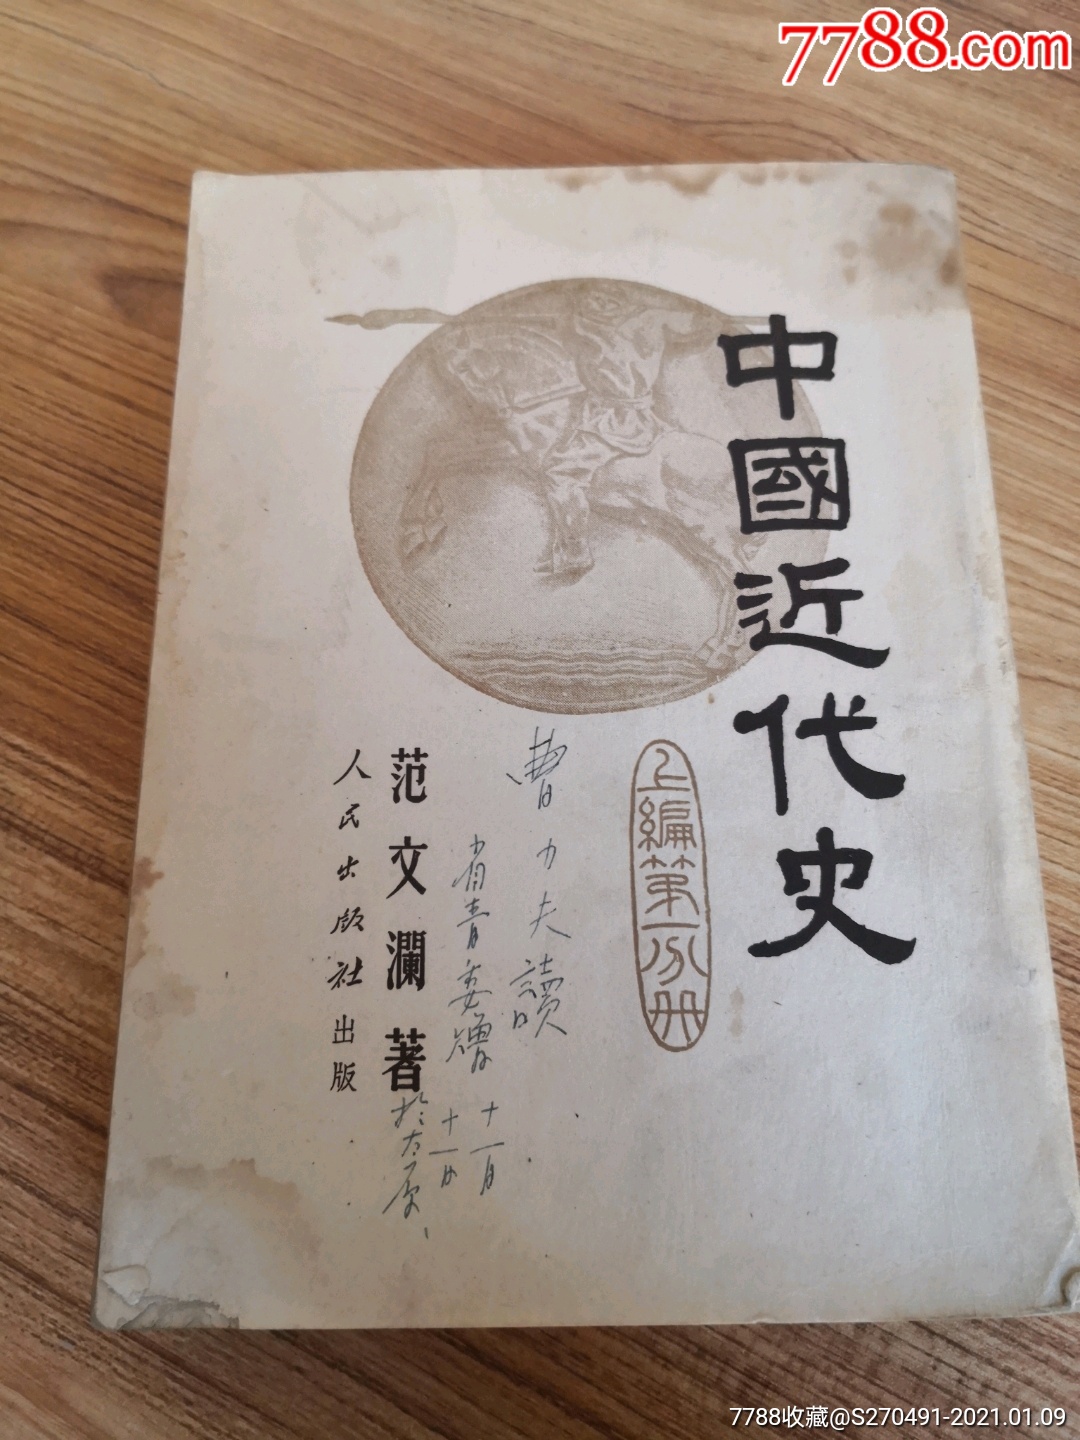 7788.com
中國近代史
上編第一分册
曹力夫讀
省青委贈
十一月
十一日
於太原
范文瀾著
人民出版社出版
7788收藏@S270491-2021.01.09